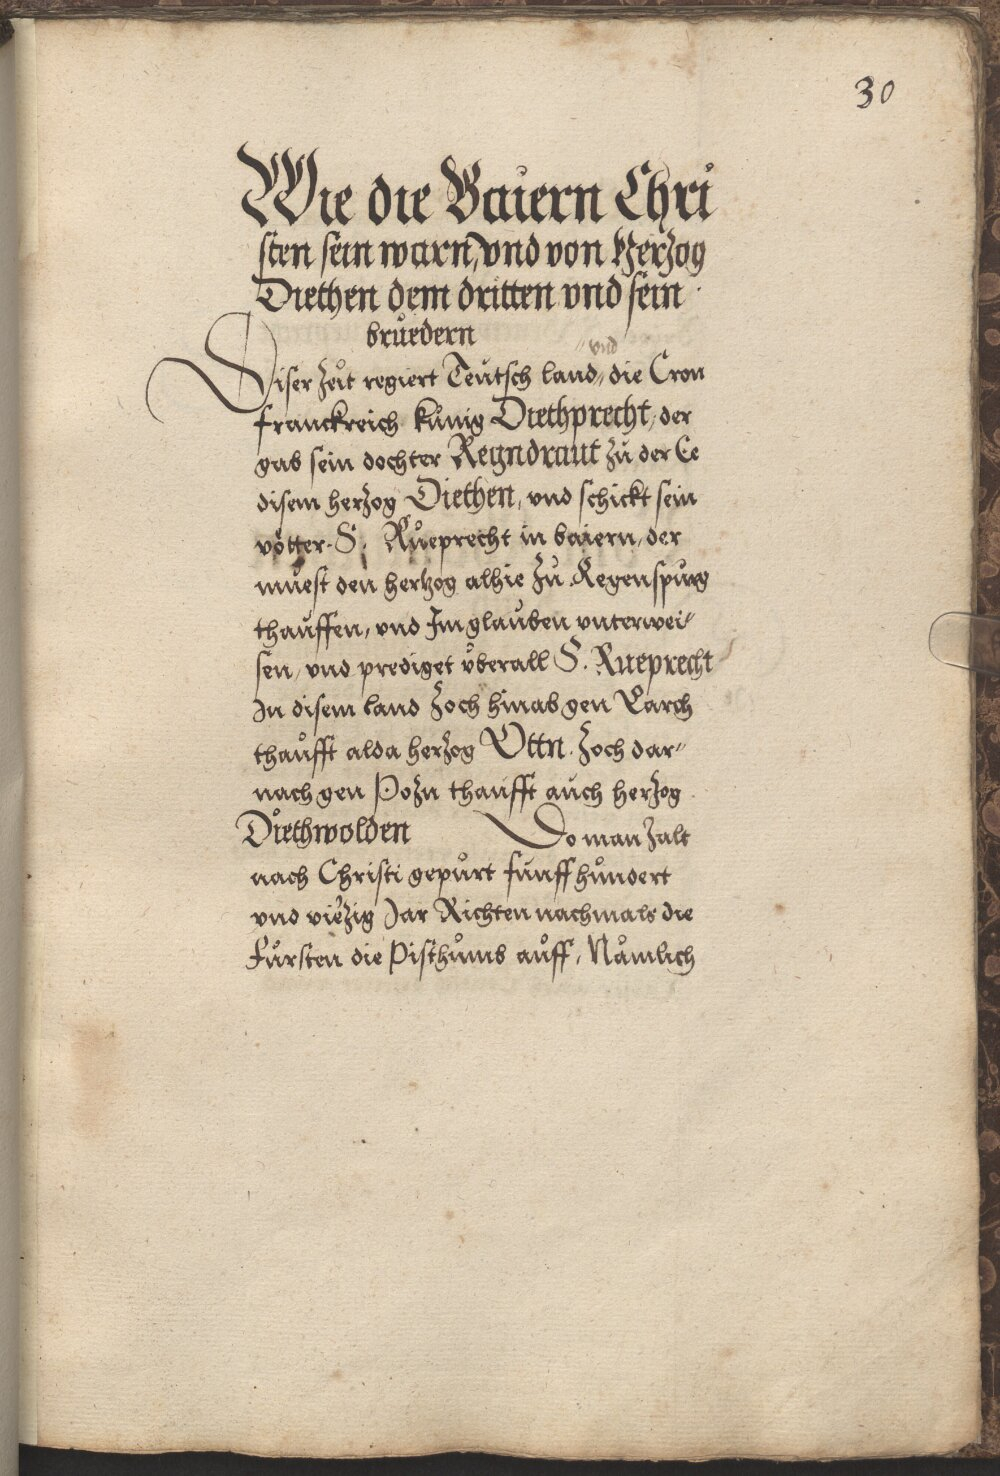 30
Wie die Baiern Chri
sten sein warn, vnd von Herzog
Diethen dem dritten vnd sein
bruedern
vnd
Diser Zeit regiert Teutsch land, die Cron
franckreich künig Diethprecht, der
gab sein dochter Regndraut zu der Ee
disem herzog Diethen, vnd schickt sein
vötter S. Rueprecht in baiern, der
muest den hertzog alhie zu Regenspurg
thauffen, vnd Im glauben vnterwei"
sen, vnd prediget vberall S. Rueprecht
In disem land zoch hinab gen Larch
thaufft alda herzog Ottn. zoch dar"
nach gen Pozn thaufft auch herzog
Diethwolden Do man zalt
nach Christi gepurt funff hundert
vnd viezig Jar Richten nachmals die
Fursten die Pisthumb auff, Nämlich